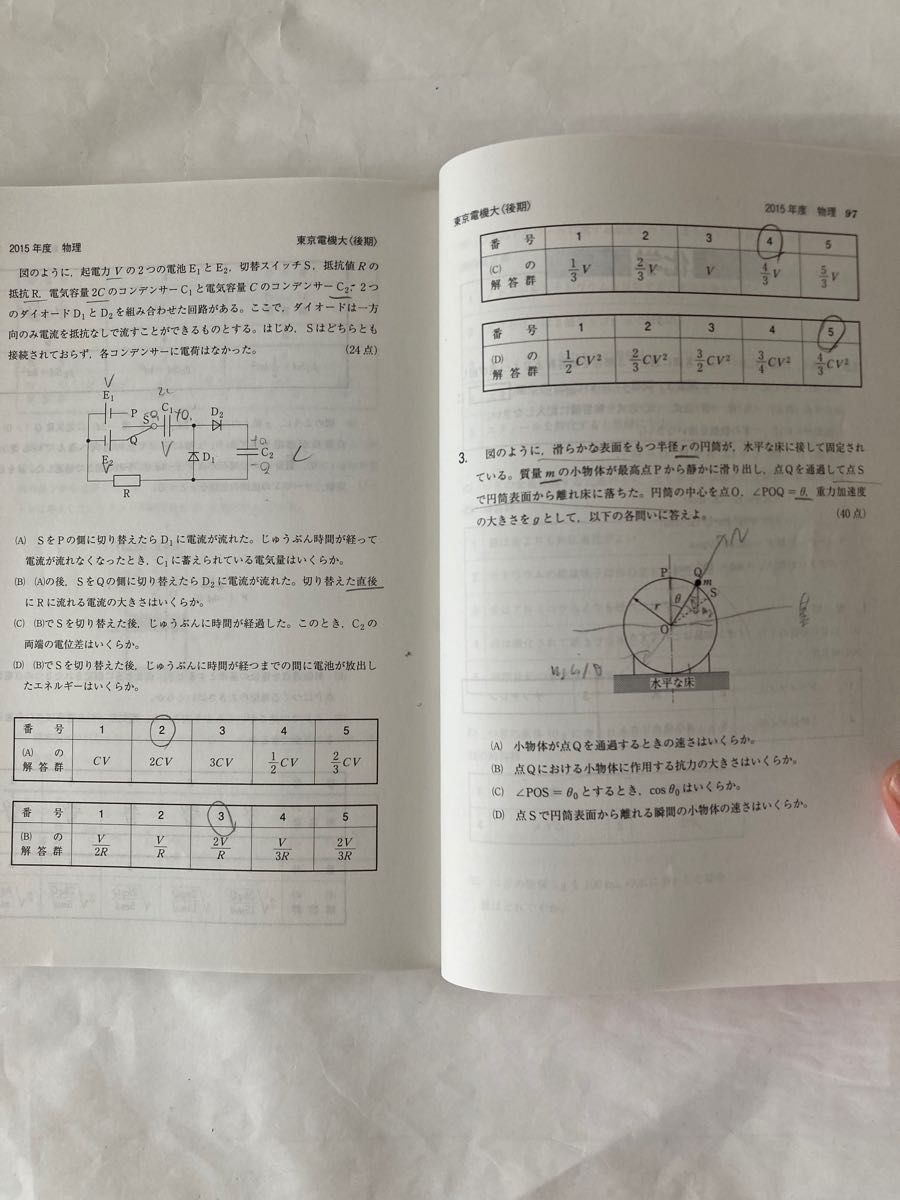 2015年度 物理
東京電機大(後期)
図のように，起電力Vの2つの電池E₁とE₂，切替スイッチS，抵抗値Rの
抵抗R，電気容量2CのコンデンサーC₁と電気容量CのコンデンサーC₂，2つ
のダイオードD₁とD₂を組み合わせた回路がある。ここで，ダイオードは一方
向のみ電流を抵抗なしで流すことができるものとする。はじめ，Sはどちらとも
接続されておらず，各コンデンサーに電荷はなかった。 (24点)
V
E₁
P
S
2C
C₁
D₂
Q
E₂
V
V
D₁
+Q
C₂
-Q
C
R
(A) SをPの側に切り替えたらD₁に電流が流れた。じゅうぶん時間が経って
電流が流れなくなったとき，C₁に蓄えられている電気量はいくらか。
(B) (A)の後，SをQの側に切り替えたらD₂に電流が流れた。切り替えた直後
にRに流れる電流の大きさはいくらか。
(C) (B)でSを切り替えた後，じゅうぶんに時間が経過した。このとき，C₂の
両端の電位差はいくらか。
(D) (B)でSを切り替えた後，じゅうぶんに時間が経つまでの間に電池が放出し
たエネルギーはいくらか。
番号 1 2 3 4 5
(A)の解答群 CV 2CV 3CV 1/2 CV 2/3 CV
番号 1 2 3 4 5
(B)の解答群 V/2R V/R 2V/R V/3R 2V/3R
東京電機大(後期)
2015年度 物理 97
番号 1 2 3 4 5
(C)の解答群 1/3 V 2/3 V V 4/3 V 5/3 V
番号 1 2 3 4 5
(D)の解答群 1/2 CV² 2/3 CV² 3/2 CV² 3/4 CV² 4/3 CV²
3. 図のように，滑らかな表面をもつ半径rの円筒が，水平な床に接して固定され
ている。質量mの小物体が最高点Pから静かに滑り出し，点Qを通過して点S
で円筒表面から離れ床に落ちた。円筒の中心を点O，∠POQ＝θ，重力加速度
の大きさをgとして，以下の各問いに答えよ。 (40点)
N
P
Q
m
S
θ
r
O
水平な床
(A) 小物体が点Qを通過するときの速さはいくらか。
(B) 点Qにおける小物体に作用する抗力の大きさはいくらか。
(C) ∠POS＝θ₀とするとき，cos θ₀はいくらか。
(D) 点Sで円筒表面から離れる瞬間の小物体の速さはいくらか。